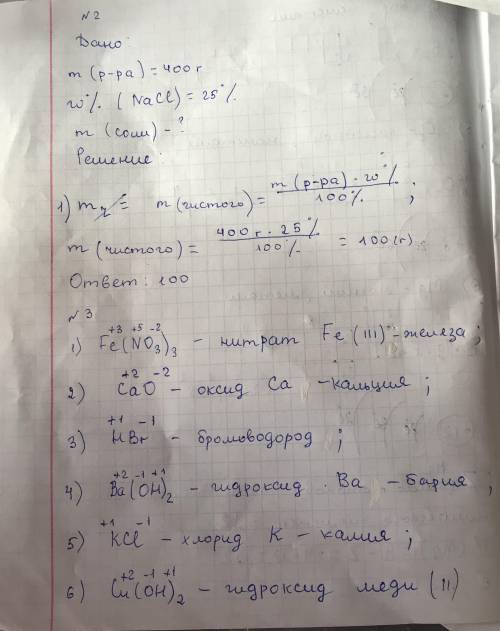 №2
Дано:
m (р-ра) = 400 г
w% (NaCl) = 25%
m (соли) - ?
Решение:
1) m = m (чистого) = m (р-ра) · w% / 100% ;
m (чистого) = 400 г · 25% / 100% = 100 (г)
Ответ: 100
№3
+3 +5 -2
1) Fe(NO₃)₃ - нитрат Fe (III) - железа ;
+2 -2
2) CaO - оксид Ca - кальция ;
+1 -1
3) HBr - бромоводород ;
+2 -1 +1
4) Ba(OH)₂ - гидроксид Ba - бария ;
+1 -1
5) KCl - хлорид K - калия ;
+2 -1 +1
6) Cu(OH)₂ - гидроксид меди (II)